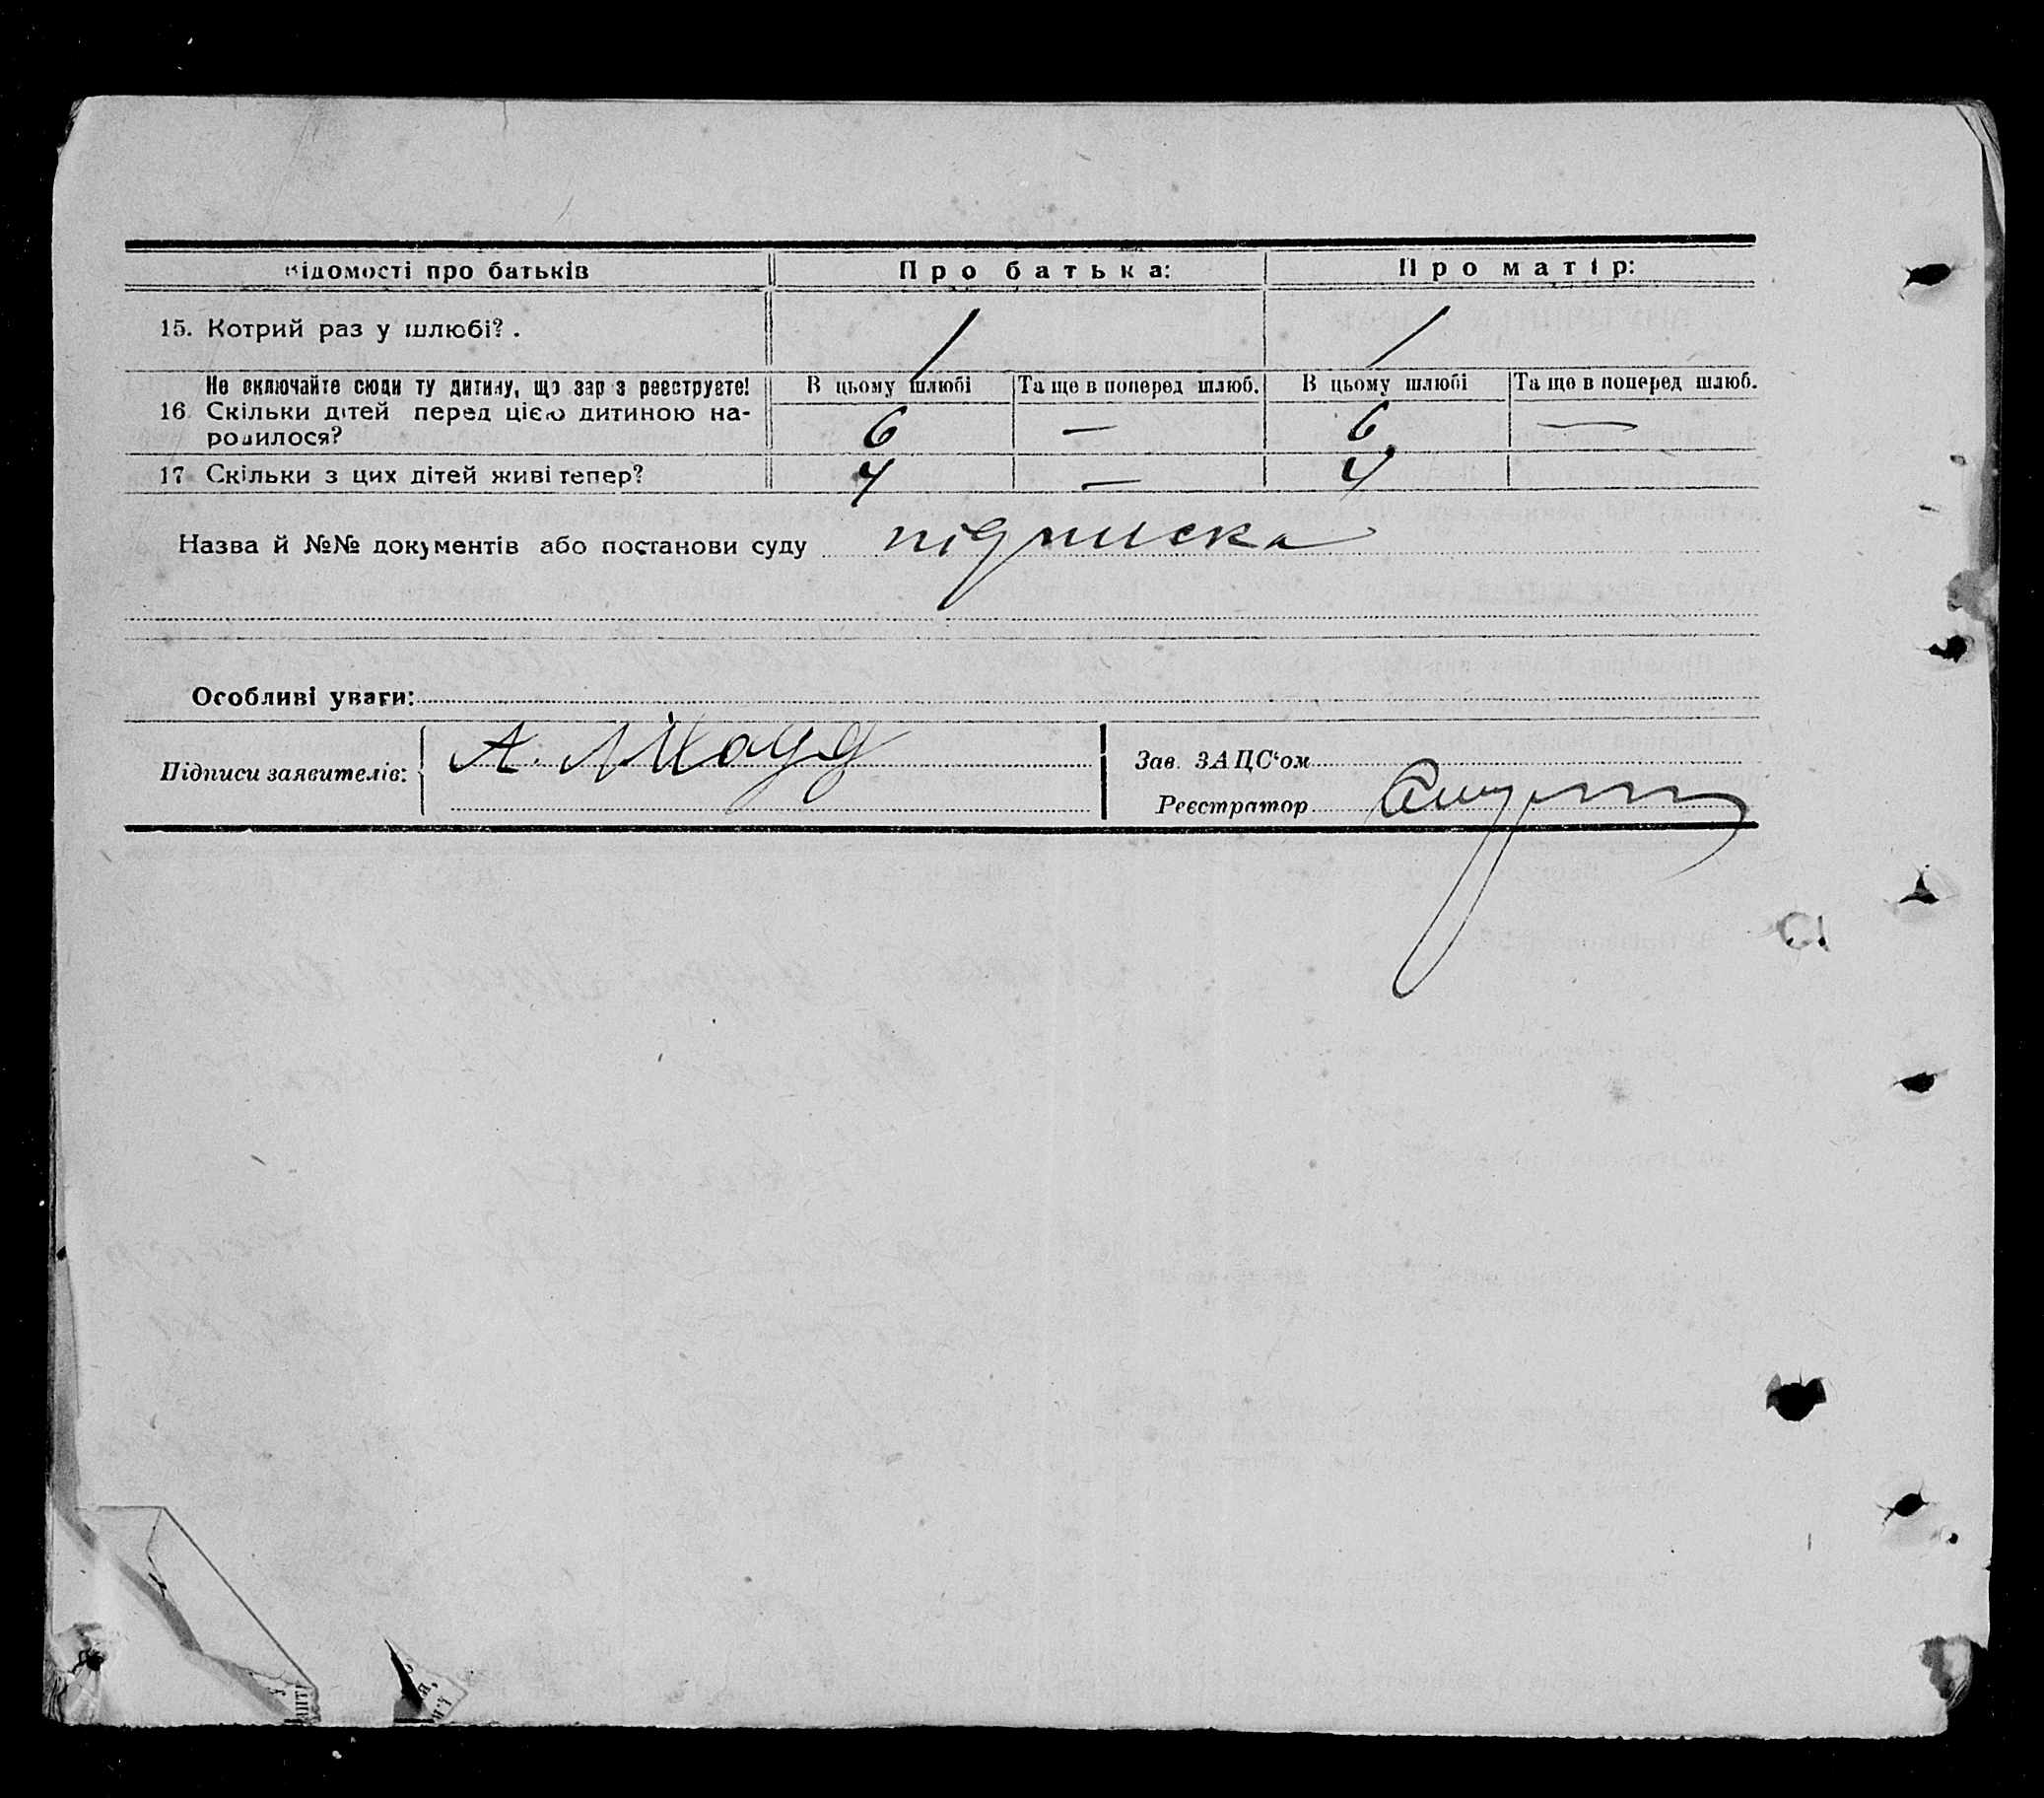 Відомості про батьків Про батька: Про матір:
15. Котрий раз у шлюбі? . / /
Не включайте сюди ту дитину, що зар з реєструєте! В цьому шлюбі Та ще в поперед шлюб. В цьому шлюбі Та ще в поперед шлюб.
16 Скільки дітей перед цією дитиною на-
родилося? 6 — 6 —
17 Скільки з цих дітей живі тепер? 4 — 4
Назва й №№ документів або постанови суду підписка
Особливі уваги:
Підписи заявителів: А.
Зав. ЗАЦС‘ом
Реєстратор